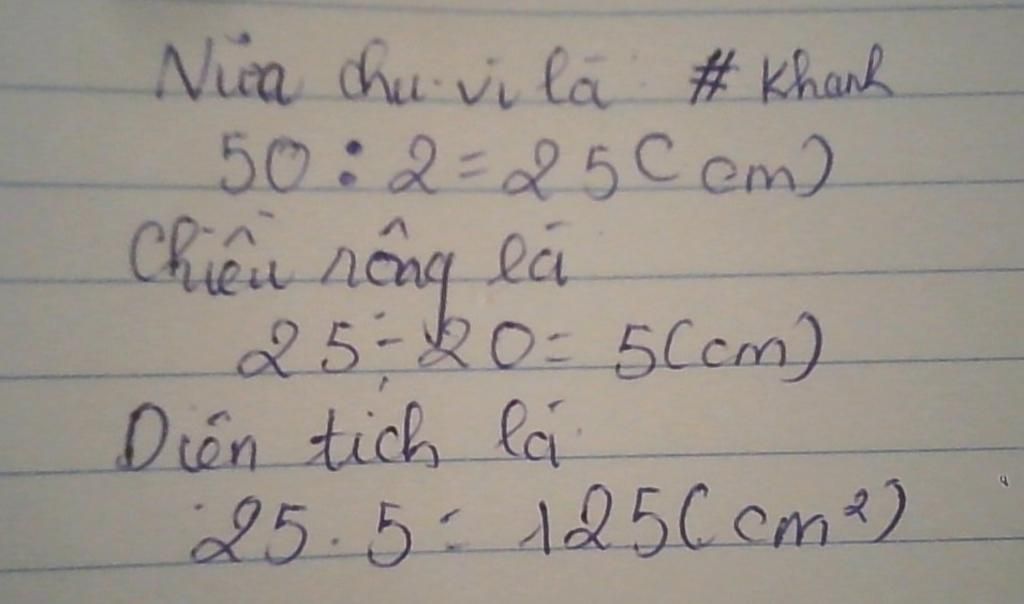 Nửa chu vi là # Khanh
50 : 2 = 25 (cm)
Chiều rộng là
25 - 20 = 5 (cm)
Diện tích là
25 . 5 = 125 (cm²)